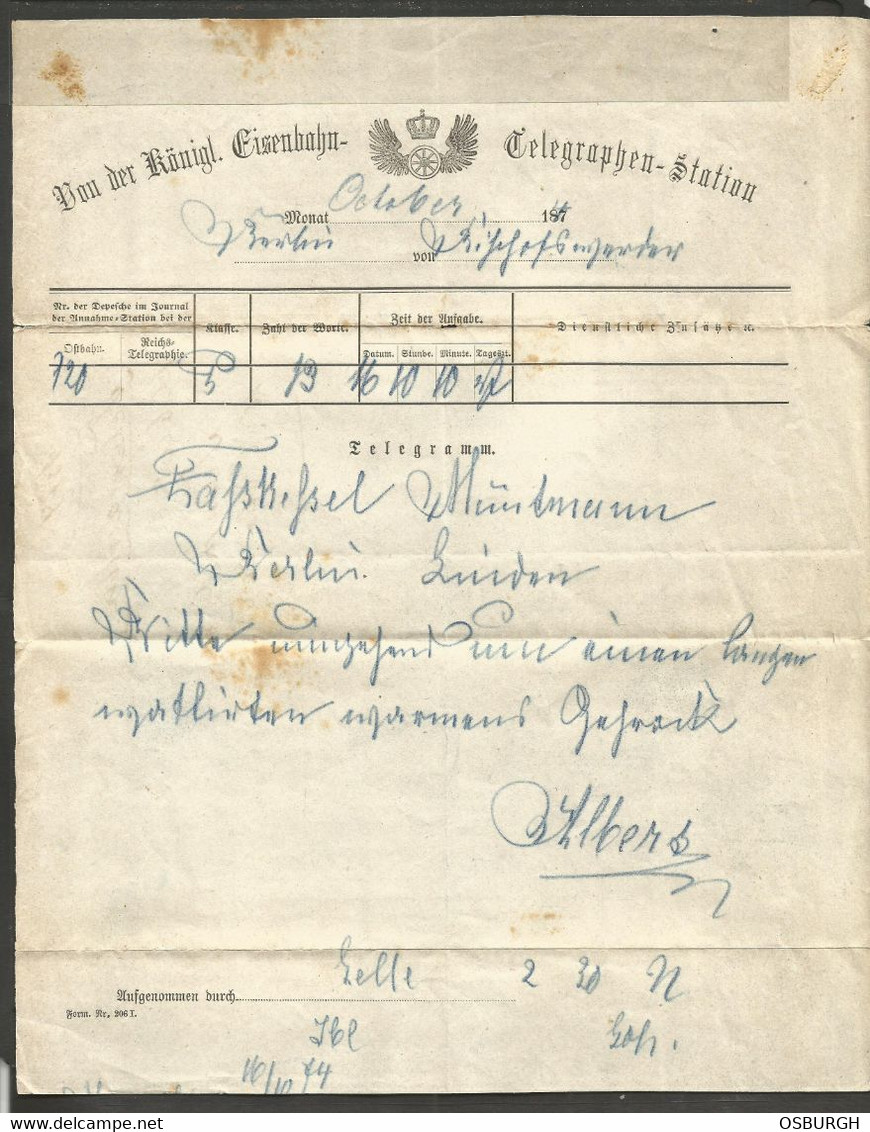 Von der Königl. Eisenbahn-Telegraphen-Station
Monat October 1874
Berlin von Bischofswerder
Nr. der Depesche im Journal der Annahme-Station bei der
Ostbahn. Reichs-Telegraphie.
Klasse. Zahl der Worte. Zeit der Aufgabe. Dienstliche Zusätze ec.
Datum. Stunde. Minute. Tageszt.
720 5 13 16 10 10
Telegramm.
Berlin. Linden
Bitte umgehend um einen langen
wattirten warmens Gehrock
Albers
Aufgenommen durch 2 30 N
Form. Nr. 206 I.
16/10 74
OSBURGH